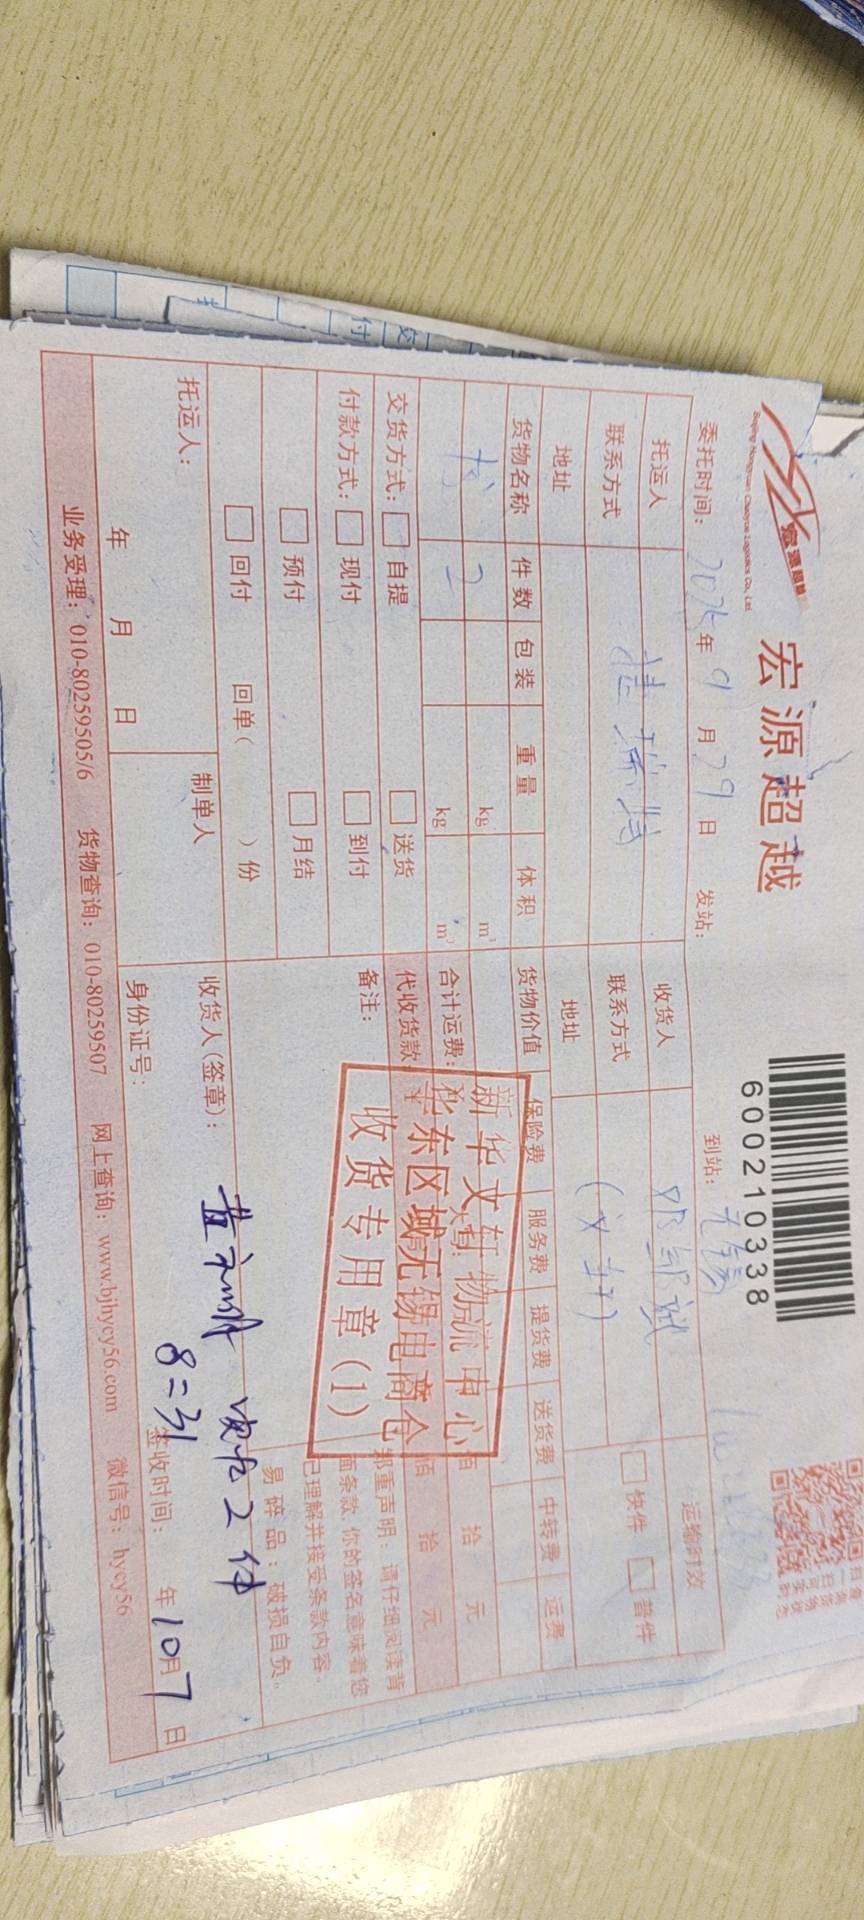 宏源超越
Beijing Hongyuan Chaoyue Logistics Co., Ltd.
600210338
委托时间: 年 9 月 29 日 发站: 到站: 无锡
托运人 桂瑞特 收货人 运输时效
联系方式 联系方式 (文轩) 快件 普件
地址 地址
货物名称 件数 包装 重量 体积 货物价值 保险费 服务费 提货费 送货费 中转费 运费
书 2 kg m³
kg m³
合计运费: 佰 拾 元
交货方式: 自提 送货 代收货款: 佰 拾 元
付款方式: 现付 到付 备注:
预付 月结
回付 回单( )份
新华文轩物流中心
华东区域无锡电商仓
收货专用章(1)
郑重声明:请仔细阅读背
面条款,你的签名意味着您
已理解并接受条款内容。
易碎品:破损自负。
托运人: 制单人 收货人(签章): 收 2 件
8=31
年 月 日 身份证号: 签收时间: 年 10 月 7 日
业务受理: 010-80259505/6 货物查询: 010-80259507 网上查询: www.bjhycy56.com 微信号: hycy56